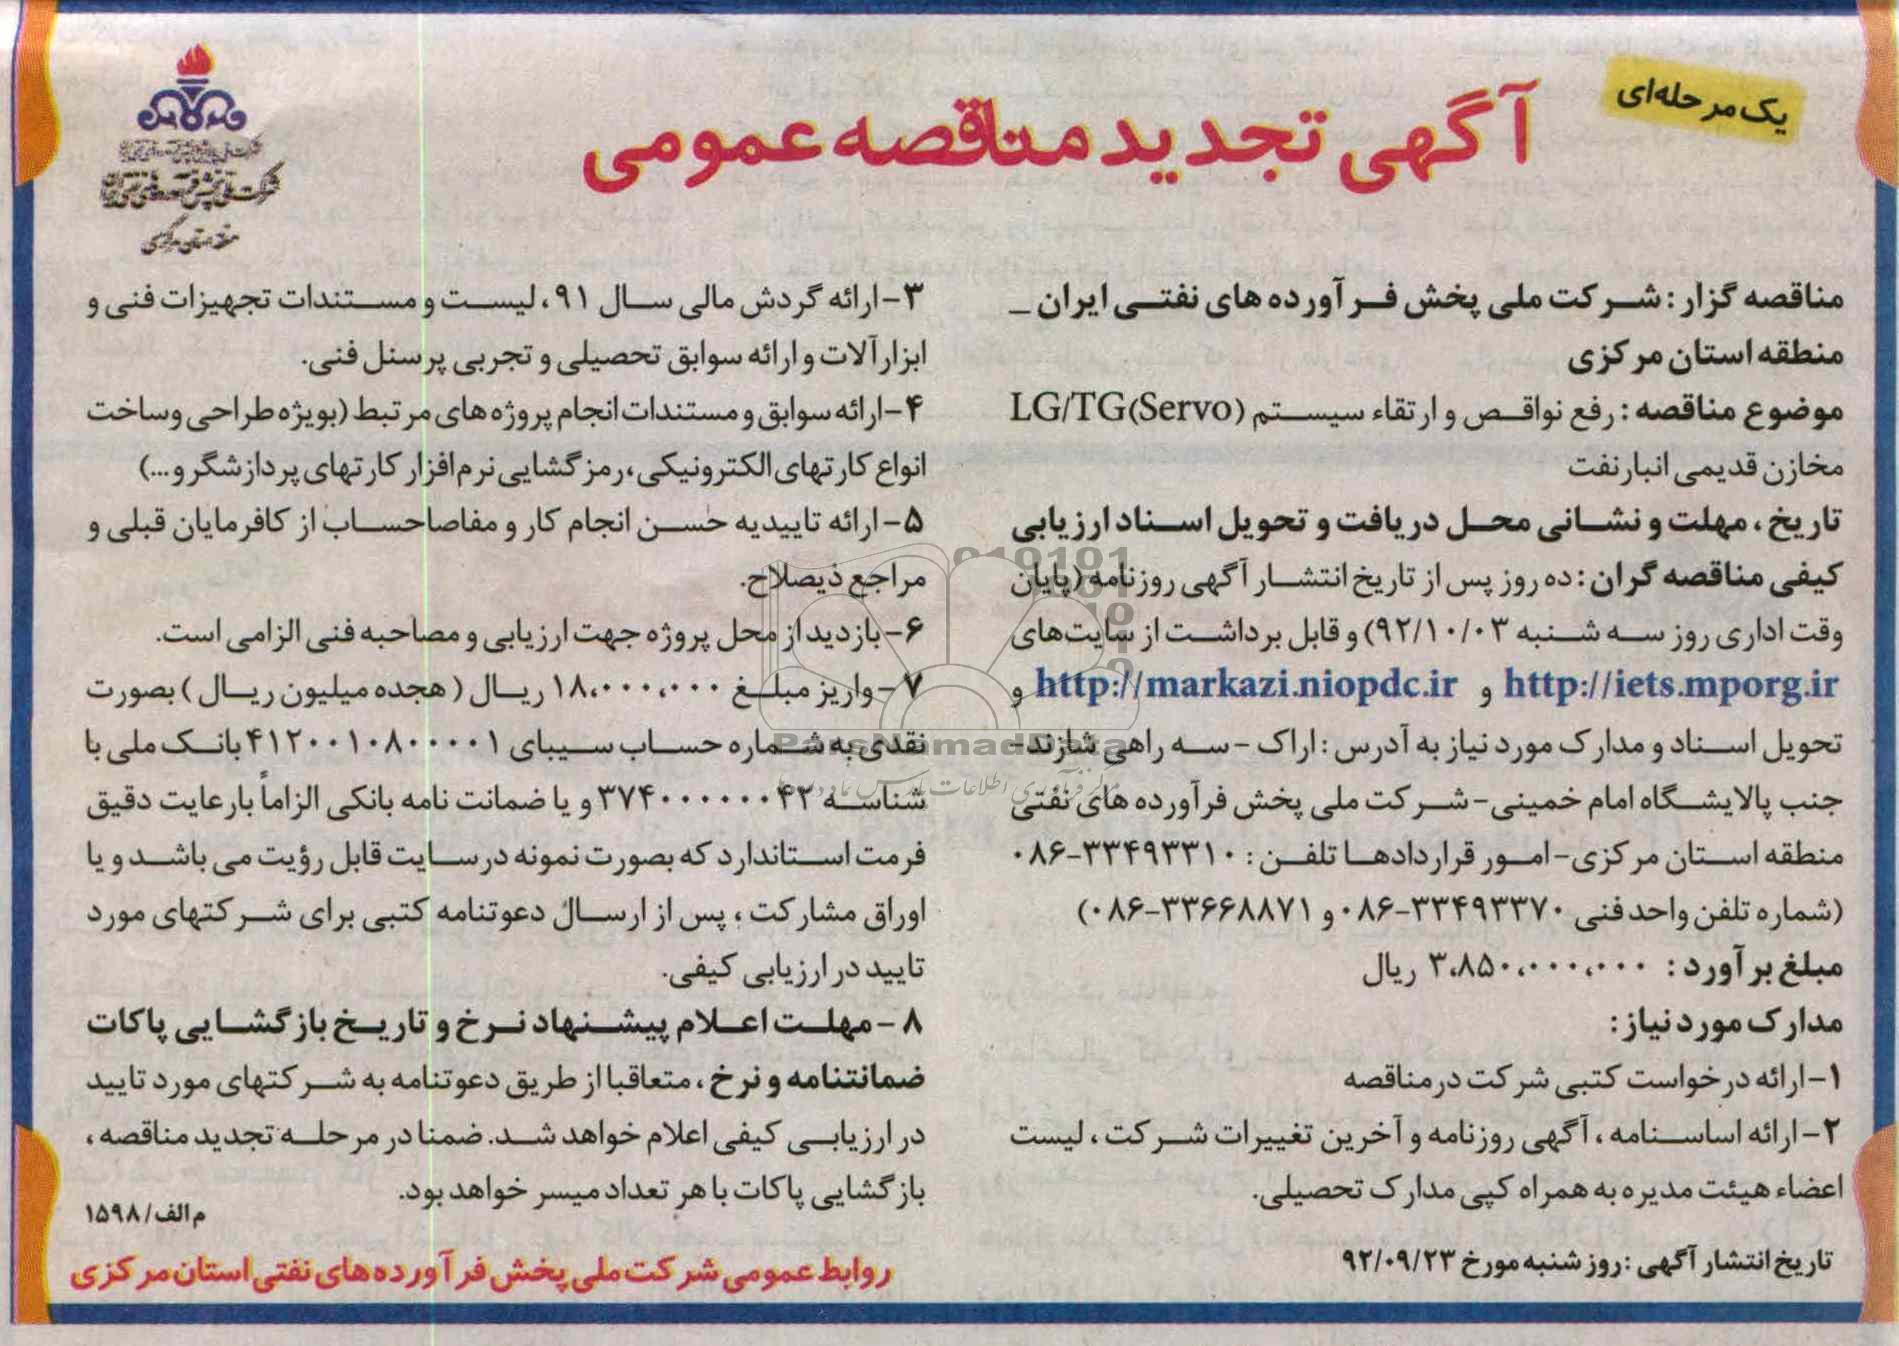 یک مرحله‌ای
آگهی تجدید مناقصه عمومی
شرکت ملی پخش فرآورده‌های نفتی ایران
منطقه استان مرکزی
مناقصه گزار : شرکت ملی پخش فرآورده های نفتی ایران _
منطقه استان مرکزی
موضوع مناقصه : رفع نواقص و ارتقاء سیستم LG/TG(Servo)
مخازن قدیمی انبارنفت
تاریخ ، مهلت و نشانی محل دریافت و تحویل اسناد ارزیابی
کیفی مناقصه گران : ده روز پس از تاریخ انتشار آگهی روزنامه (پایان
وقت اداری روز سه شنبه ۹۲/۱۰/۰۳) و قابل برداشت از سایت‌های
http://iets.mporg.ir و http://markazi.niopdc.ir و
تحویل اسناد و مدارک مورد نیاز به آدرس : اراک - سه راهی شازند-
جنب پالایشگاه امام خمینی- شرکت ملی پخش فرآورده های نفتی
منطقه استان مرکزی- امور قراردادها تلفن : ۳۳۴۹۳۳۱۰-۰۸۶
(شماره تلفن واحد فنی ۳۳۴۹۳۳۷۰-۰۸۶ و ۳۳۶۶۸۸۷۱-۰۸۶)
مبلغ برآورد : ۳،۸۵۰،۰۰۰،۰۰۰ ریال
مدارک مورد نیاز :
۱- ارائه درخواست کتبی شرکت در مناقصه
۲- ارائه اساسنامه ، آگهی روزنامه و آخرین تغییرات شرکت ، لیست
اعضاء هیئت مدیره به همراه کپی مدارک تحصیلی.
تاریخ انتشار آگهی : روز شنبه مورخ ۹۲/۰۹/۲۳
۳- ارائه گردش مالی سال ۹۱ ، لیست و مستندات تجهیزات فنی و
ابزارآلات و ارائه سوابق تحصیلی و تجربی پرسنل فنی.
۴- ارائه سوابق و مستندات انجام پروژه های مرتبط (بویژه طراحی و ساخت
انواع کارتهای الکترونیکی ، رمزگشایی نرم افزار کارتهای پردازشگر و ...)
۵- ارائه تاییدیه حسن انجام کار و مفاصاحساب از کافرمایان قبلی و
مراجع ذیصلاح.
۶- بازدید از محل پروژه جهت ارزیابی و مصاحبه فنی الزامی است.
۷- واریز مبلغ ۱۸،۰۰۰،۰۰۰ ریال ( هجده میلیون ریال ) بصورت
نقدی به شماره حساب سیبای ۴۱۲۰۰۱۰۸۰۰۰۰۱ بانک ملی با
شناسه ۳۷۴۰۰۰۰۰۰۴۲ و یا ضمانت نامه بانکی الزاماً با رعایت دقیق
فرمت استاندارد که بصورت نمونه در سایت قابل رؤیت می باشد و یا
اوراق مشارکت ، پس از ارسال دعوتنامه کتبی برای شرکتهای مورد
تایید در ارزیابی کیفی.
۸ - مهلت اعلام پیشنهاد نرخ و تاریخ بازگشایی پاکات
ضمانتنامه و نرخ ، متعاقبا از طریق دعوتنامه به شرکتهای مورد تایید
در ارزیابی کیفی اعلام خواهد شد. ضمنا در مرحله تجدید مناقصه ،
بازگشایی پاکات با هر تعداد میسر خواهد بود.
م الف/ ۱۵۹۸
روابط عمومی شرکت ملی پخش فرآورده های نفتی استان مرکزی
ParsNamadData